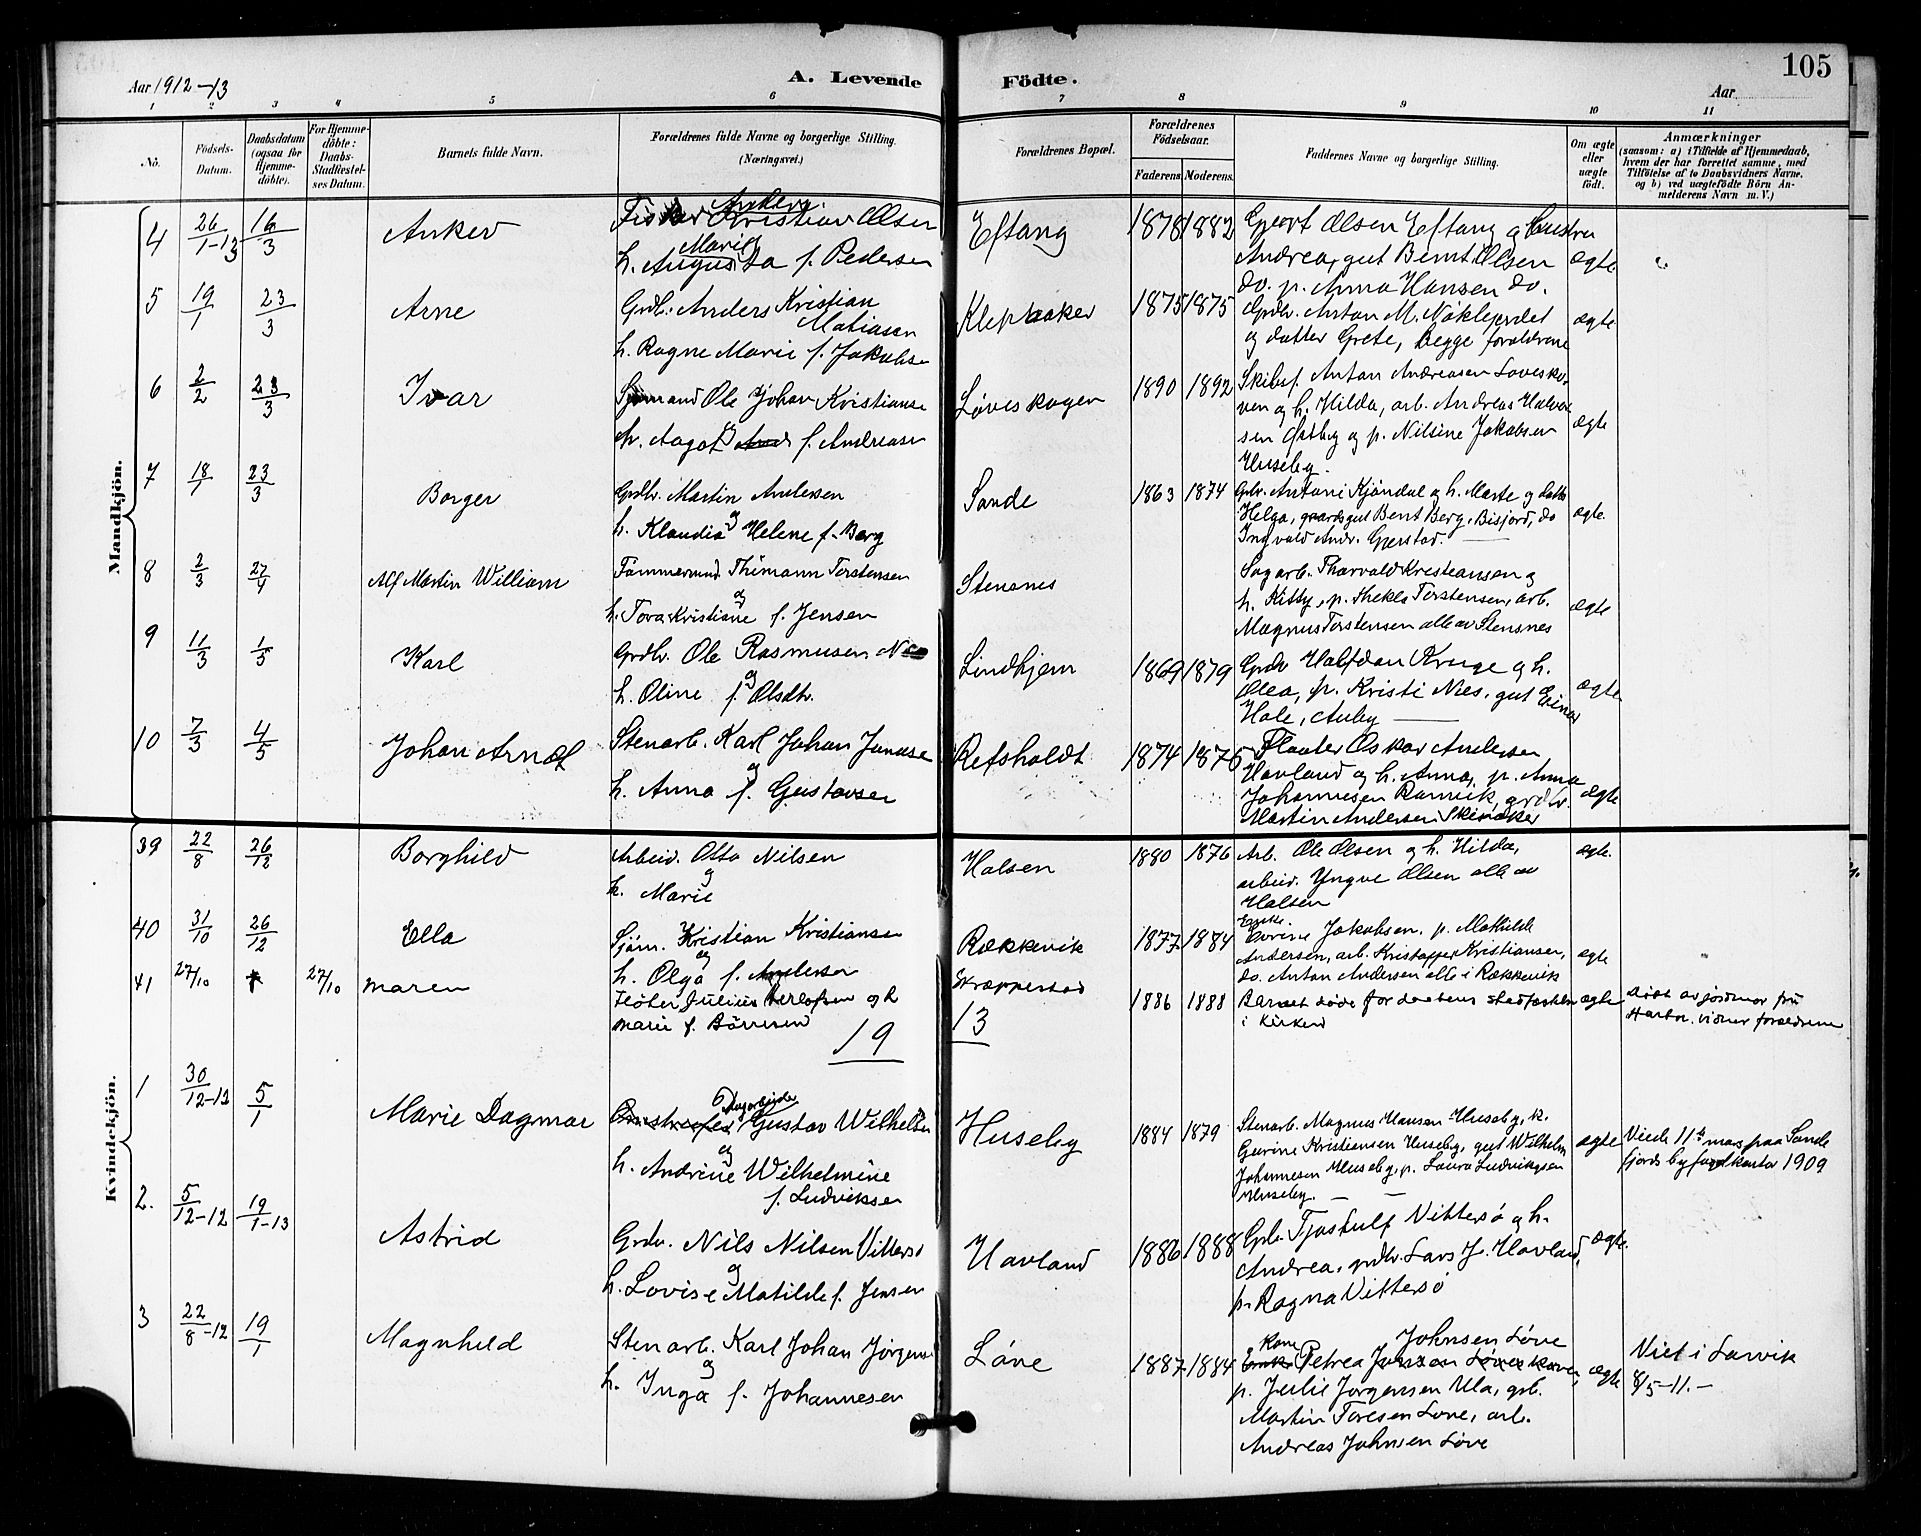 105
Aar 1912-13
A. Levende Födte.
Aar
1 2 3 4 5 6 7 8 9 10 11
No.
Födsels-Datum.
Daabsdatum (ogsaa for Hjemme-döbte).
For Hjemme-döbte: Daabs-Stadfæstel-ses Datum.
Barnets fulde Navn.
Forældrenes fulde Navne og borgerlige Stilling.
(Næringsvei.)
Forældrenes Bopæl.
Forældrenes Födselsaar.
Faderens. Moderens.
Faddernes Navne og borgerlige Stilling.
Om ægte eller uægte födt.
Anmærkninger
(saasom: a) i Tilfælde af Hjemmedaab,
hvem der har forrettet samme, med
Tilföielse af to Daabsvidners Navne,
og b) ved uægtefödte Börn An-
melderens Navn m. V.)
Mandkjön.
4 26/1-13 16/3 Anker
Fisker Kristian Olsen
Marie
h. Augusta f. Pedersen
Eftang 1878 1882
Olsen Eftang og hustru
Andrea, gut Bernt Olsen
do. p. Anna Hansen do.
ægte
5 19/1 23/3 Arne
Grdb. Anders Kristian
Matiasen
h. Ragne Marie f. Jakobse
Klepaaker 1875 1875
Grdbr. Anton M. Nöklegardet
og datter Grete, begge forældrene
ægte
6 2/2 23/3 Ivar
Sjömand Ole Johan Kristianse
og
h. Aagot f. Andreasen
Löveskogen 1890 1892
Skibsf. Anton Andreasen Lövesko-
ven og h. Hilda, arb. Andreas Halvor
sen Östby og p. Nilsine Jakobsen
Huseby.
ægte
7 18/1 23/3 Borger
Grdbr. Martin Andersen
og
h. Klaudia Helene f. Berg
Sande 1863 1874
Grbr. Antoni Kjöndal og h. Marte og datter
Helga, gaardsgut Bent Berg, Bisjord, do
Ingvald Andr. Gjerstad.
ægte.
8 2/3 27/4 Alf Martin William
Tömmermd. Thimann Torstensen
og
h. Tora Kristiane f. Jensen
Stensnes
Sagarb. Thorvald Kristiansen og
h. Kitty, p. Thekla Torstensen, arb.
Magnus Torstensen alle av Stensnes
ægte
9 11/3 1/5 Karl
Grdbr. Ole Rasmusen
og
h. Oline f. Olsdtr.
Lindhjem 1869 1879
Grdbr Halfdan Kruge og h.
Olea, p. Kristi Nies, gut Einar
Hole, Auby
ægte
10 7/3 4/5 Johan Arndt
Stenarb. Karl Johan Jonasse
og
h. Anna f. Gustavsen
Refsholdt 1874 1876
Flaater Oskar Andersen
Havland og h. Anna, p. Anna
Johannesen Ramvik, grdbr.
Martin Andersen Skinaker
ægte
39 22/8 26/12 Borghild
Arbeid. Otto Nilsen
og
h. Marie
Halsen 1880 1876
Arb. Ole Olsen og h. Hilda,
arbeid. Yngve Olsen alle av
Halsen
ægte.
40 31/10 26/12 Ella
Sjöm. Kristian Kristianse
og
h. Olga f. Andersen
Rækkevik 1877 1884
Enke.
Jakobsen, p. Mathilde
Andersen, arb. Kristoffer Kristiansen,
do. Anton Andersen alle i Rækkevik
ægte
41 27/10 27/10 Maren
Julius og h
Marie f. Börresen
1886 1888
Barnet döde for daabens stadfæstelse
i kirken
ægte
Döbt av jordmor fru
vidner forældrene
19
13
Kvindekjön.
1 30/12-12 5/1 Marie Dagmar
Gustav Wilhelmse
og
h. Andrine Wilhelmine
f. Ludviksen
Huseby 1884 1879
Stenarb. Magnus Hansen Huseby, k.
Gurine Kristiansen Huseby, gut Wilhelm
Johannesen Huseby, p. Laura Ludviksen
Huseby.
ægte
Viede 11te mars paa Sande
fjords byfogdkontor 1909
2. 5/12-12 19/1-13 Astrid
Grdbr. Nils Nilsen Vittersö
og
h. Lovise Matilde f. Jensen
Havland 1886 1888
Grbr. Tjostulf Vittersö og h.
Andrea, grdbr. Lars J. Havland,
p. Ragna Vittersö
ægte.
3 22/8-12 19/1 Magnhild
Stenarb. Karl Johan Jörgens
og
h. Inga f. Johannesen
Löve 1887 1884
Kone Johnsen Löve
Petrea
p. Julie Jorgensen Ula, grb.
Martin Toresen Löve, arb.
Andreas Johnsen Löve
ægte
Viet i Larvik
8/5-11.-